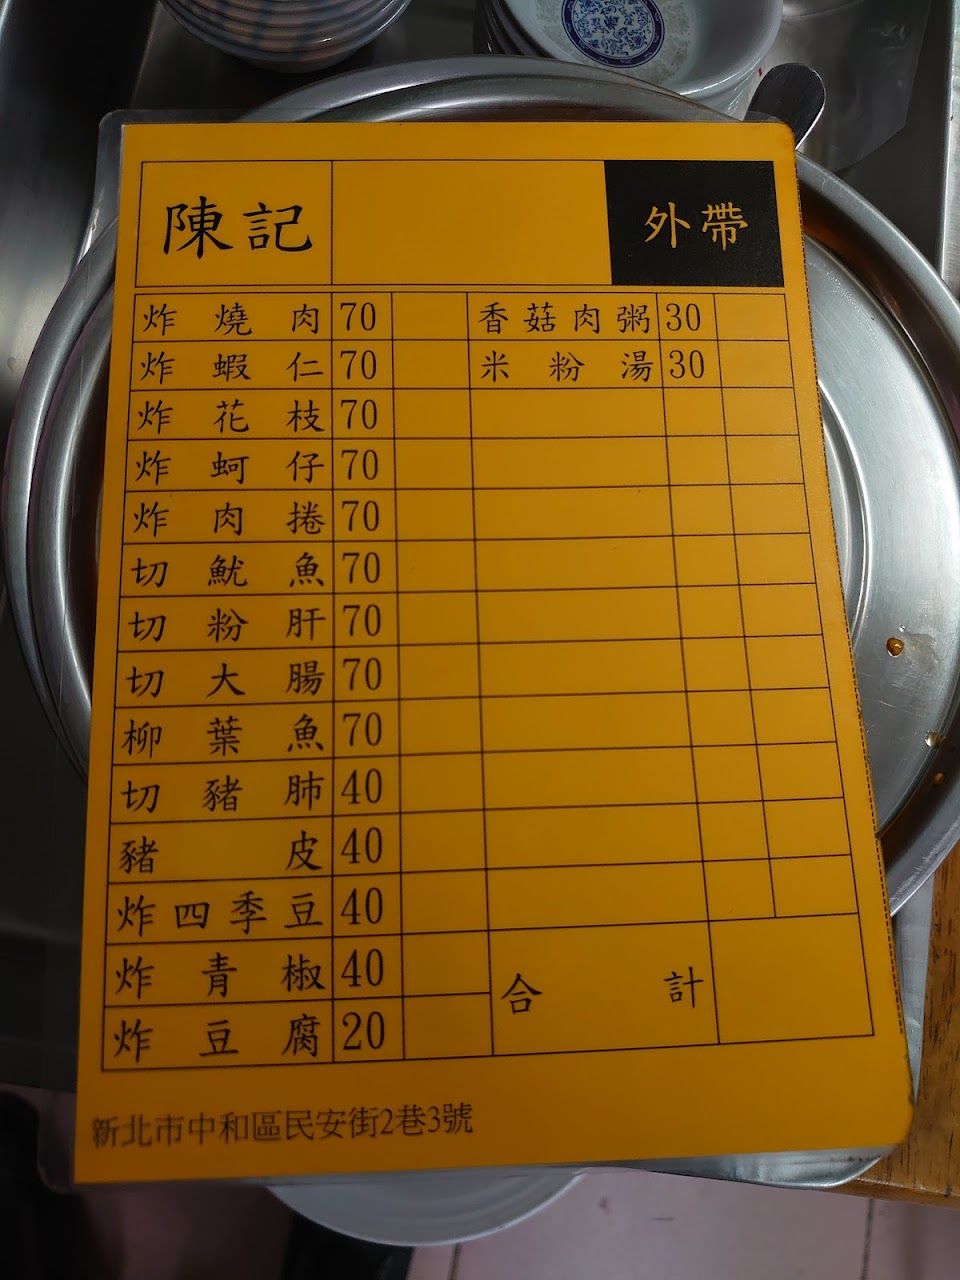 陳記 外帶
炸燒肉 70 香菇肉粥 30
炸蝦仁 70 米粉湯 30
炸花枝 70
炸蚵仔 70
炸肉捲 70
切魷魚 70
切粉肝 70
切大腸 70
柳葉魚 70
切豬肺 40
豬皮 40
炸四季豆 40
炸青椒 40 合計
炸豆腐 20
新北市中和區民安街2巷3號